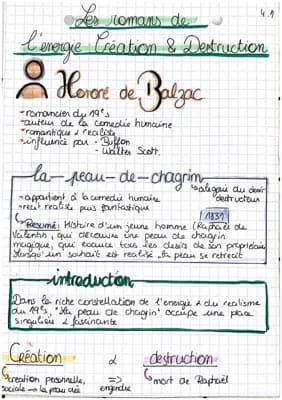 4.1
Les romans de
l'energie Création & Destruction
Honoré de Balzac
romancier du 19ᵉs
auteur de la comedie humaine
romantique & realiste
influencé par - Buffon
- Walter Scott.
la-peau-de-chagrin
allegorie du desir
destructeur
appartient à la comedie humaine
recit realiste puis fantastique
1831
Resumé: Histoire d'un jeune homme (Raphael de
Valentin, qui découvre une peau de chagrin
magique, qui exauce tous les desirs de son propriétaire
lorsqu'un souhait est realisé, la peau se retrecit
introduction
Dans la riche constellation de l'energie & du realisme
du 19ᵉs, "la peau de chagrin" occupe une place
singulière & fascinante
Création & destruction
creation personnelle, => mort de Raphaël
sociale → la peau crée engendre